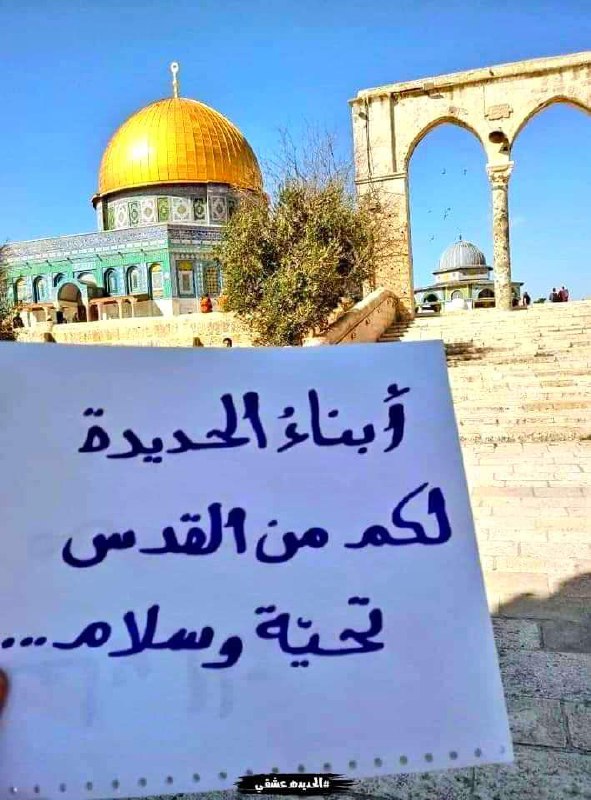 أبناءُ الحديدة
لكم من القدس
تحيّة وسلام...
#الحديده_عشقي